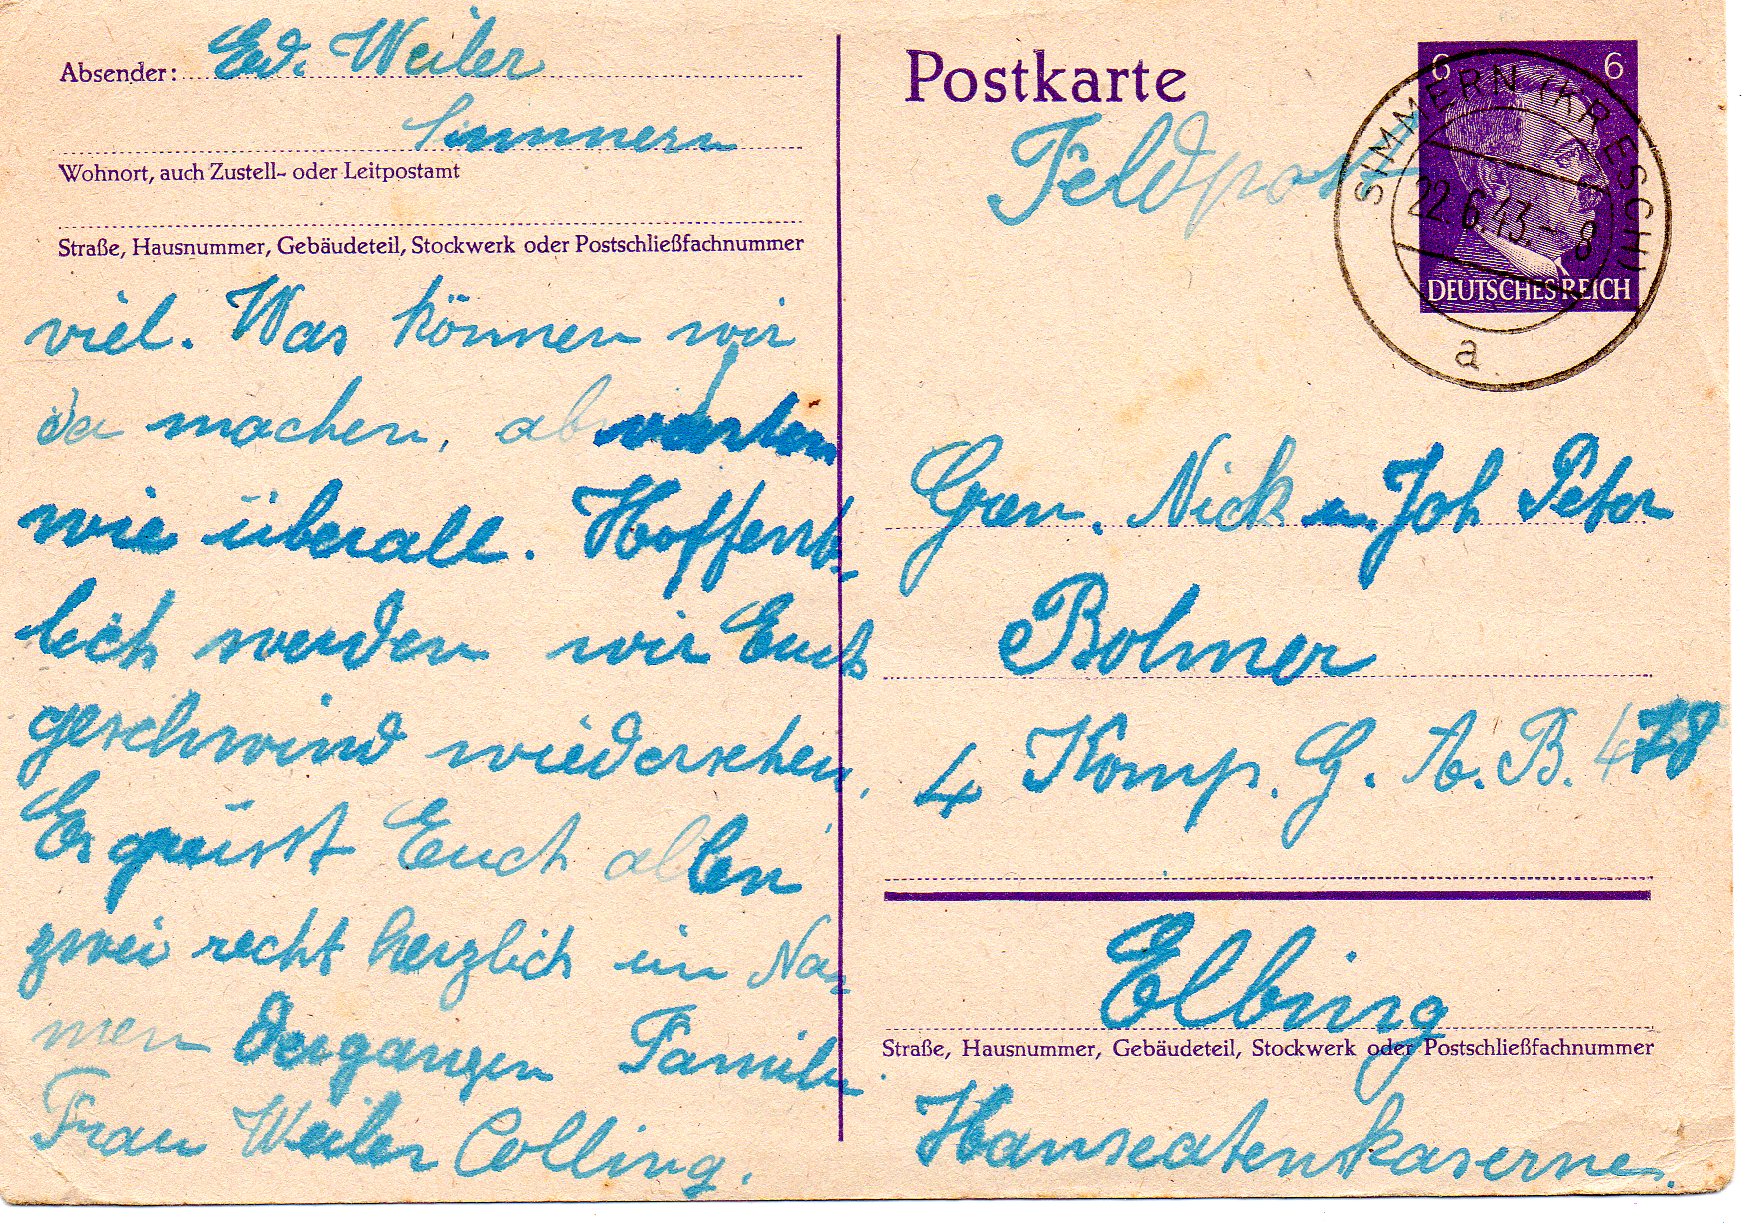 Absender: Ed. Weiler
Simmern
Wohnort, auch Zustell- oder Leitpostamt
Straße, Hausnummer, Gebäudeteil, Stockwerk oder Postschließfachnummer
viel. Was können wir
da machen, abwarten
wie überall. Hoffent-
lich werden wir Euch
geschwind wiedersehen.
Es grüsst Euch allen
zwei recht herzlich im Na-
men der ganzen Familie
Frau Weiler Colling.
Postkarte
Feldpost
6 6
DEUTSCHES REICH
SIMMERN (KR ESCH)
22.6.43.-8
a
Gren. Nick u. Joh Peter
Bolmer
4 Komp. G. A. B. 478
Elbing
Straße, Hausnummer, Gebäudeteil, Stockwerk oder Postschließfachnummer
Hanseatenkaserne.